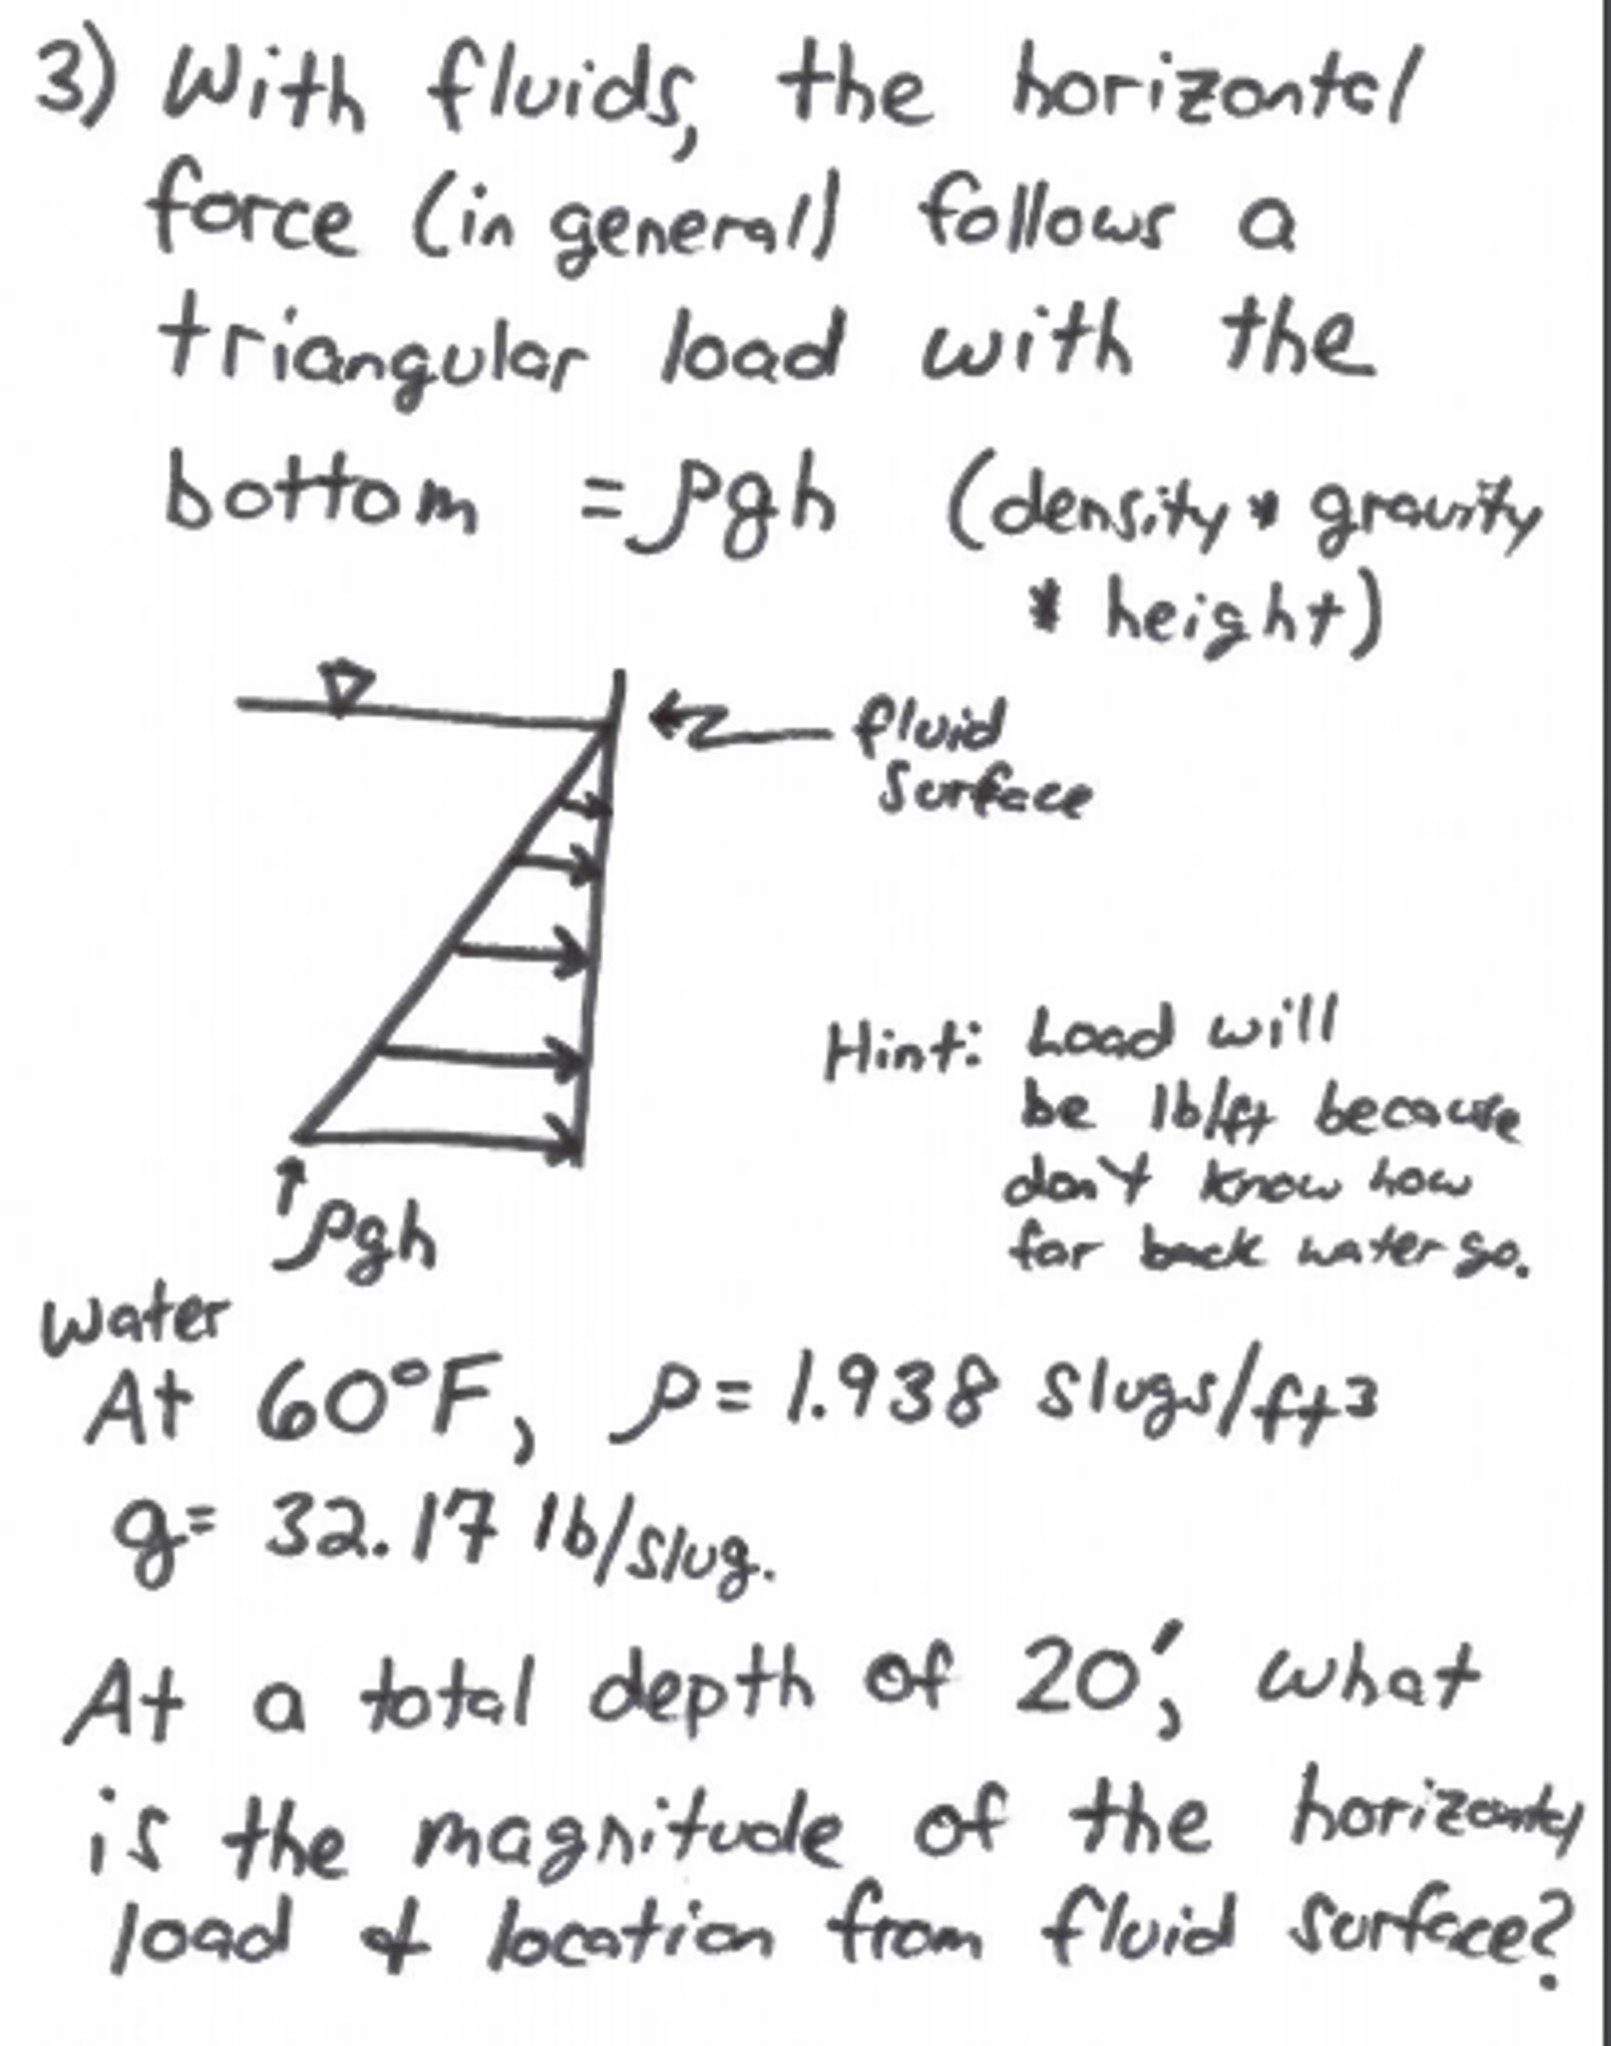 3) With fluids, the horizontal
force (in general) follows a
triangular load with the
bottom = ρgh (density * gravity
* height)
fluid
surface
Hint: Load will
be lb/ft because
don't know how
far back water go.
ρgh
water
At 60°F, ρ = 1.938 slugs/ft3
g = 32.17 lb/slug.
At a total depth of 20', what
is the magnitude of the horizontal
load & location from fluid surface?